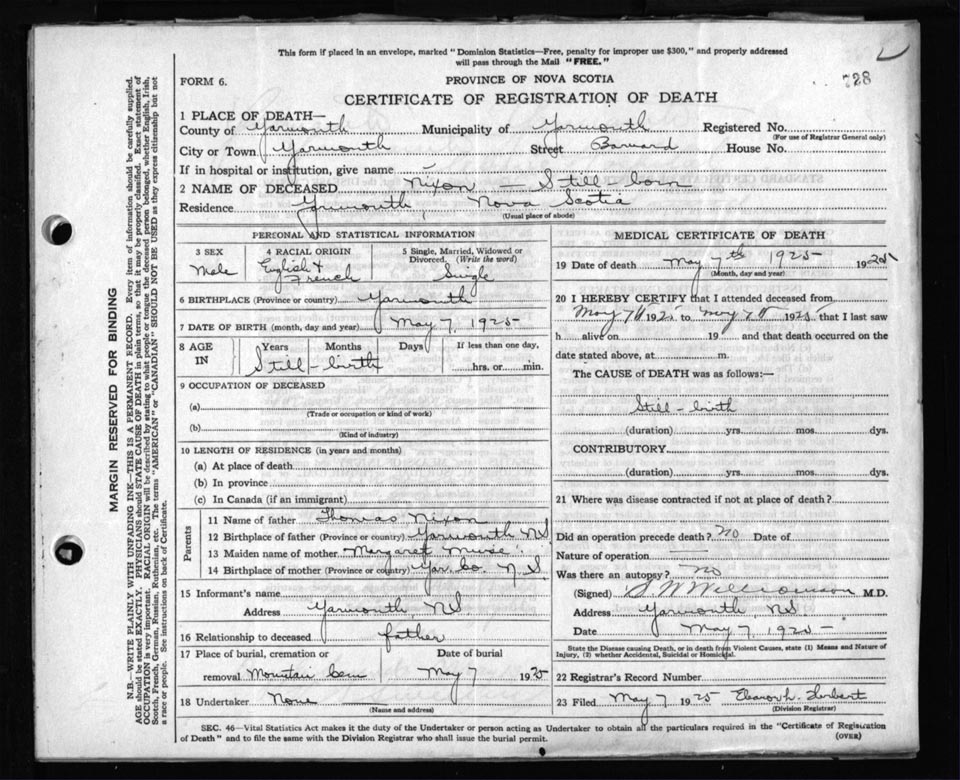 This form if placed in an envelope, marked "Dominion Statistics—Free, penalty for improper use $300," and properly addressed
will pass through the Mail "FREE."
728
FORM 6.
PROVINCE OF NOVA SCOTIA
CERTIFICATE OF REGISTRATION OF DEATH
1 PLACE OF DEATH—
County of Yarmouth Municipality of Yarmouth Registered No.
(For use of Registrar General only)
City or Town Yarmouth Street Barnard House No.
If in hospital or institution, give name —
2 NAME OF DECEASED Nixon — Still-born
Residence Yarmouth, Nova Scotia
(Usual place of abode)
PERSONAL AND STATISTICAL INFORMATION
3 SEX Male
4 RACIAL ORIGIN English & French
5 Single, Married, Widowed or Divorced. (Write the word) Single
6 BIRTHPLACE (Province or country) Yarmouth
7 DATE OF BIRTH (month, day and year) May 7, 1925—
8 AGE IN Years Months Days If less than one day,
Still-birth hrs. or min.
9 OCCUPATION OF DECEASED
(a)
(Trade or occupation or kind of work)
(b)
(Kind of industry)
10 LENGTH OF RESIDENCE (in years and months)
(a) At place of death
(b) In province
(c) In Canada (if an immigrant)
Parents
11 Name of father Thomas Nixon
12 Birthplace of father (Province or country) Yarmouth NS
13 Maiden name of mother Margaret Muise
14 Birthplace of mother (Province or country) Yar. Co. N S
15 Informant's name
Address Yarmouth, NS
16 Relationship to deceased father
17 Place of burial, cremation or Date of burial
removal Mountain Cem May 7 1925
18 Undertaker None
(Name and address)
MEDICAL CERTIFICATE OF DEATH
19 Date of death May 7th 1925 192
(Month, day and year)
20 I HEREBY CERTIFY that I attended deceased from
May 7th 1925 to May 7th 1925 that I last saw
h alive on 19 and that death occurred on the
date stated above, at m.
The CAUSE of DEATH was as follows:—
Still-birth
(duration) yrs. mos. dys.
CONTRIBUTORY
(duration) yrs. mos. dys.
21 Where was disease contracted if not at place of death?
Did an operation precede death? No Date of
Nature of operation —
Was there an autopsy? No
(Signed) Williamson M.D.
Address Yarmouth NS
Date May 7, 1925—
State the Disease causing Death, or in death from Violent Causes, state (1) Means and Nature of
Injury, (2) whether Accidental, Suicidal or Homicidal.
22 Registrar's Record Number
23 Filed May 7 1925 Herbert
(Division Registrar)
SEC. 46—Vital Statistics Act makes it the duty of the Undertaker or person acting as Undertaker to obtain all the particulars required in the "Certificate of Registration
of Death" and to file the same with the Division Registrar who shall issue the burial permit.
(OVER)
MARGIN RESERVED FOR BINDING
N.B.—WRITE PLAINLY WITH UNFADING INK—THIS IS A PERMANENT RECORD. Every item of information should be carefully supplied.
AGE should be stated EXACTLY. PHYSICIANS should STATE CAUSE OF DEATH in plain terms, so that it may be properly classified. Exact statement of
OCCUPATION is very important. RACIAL ORIGIN will be described by stating to what people or tongue the deceased person belonged, whether English, Irish,
Scotch, French, German, Russian, Ruthenian, etc. The terms "AMERICAN" or "CANADIAN" SHOULD NOT BE USED as they express citizenship but not
a race or people. See instructions on back of Certificate.